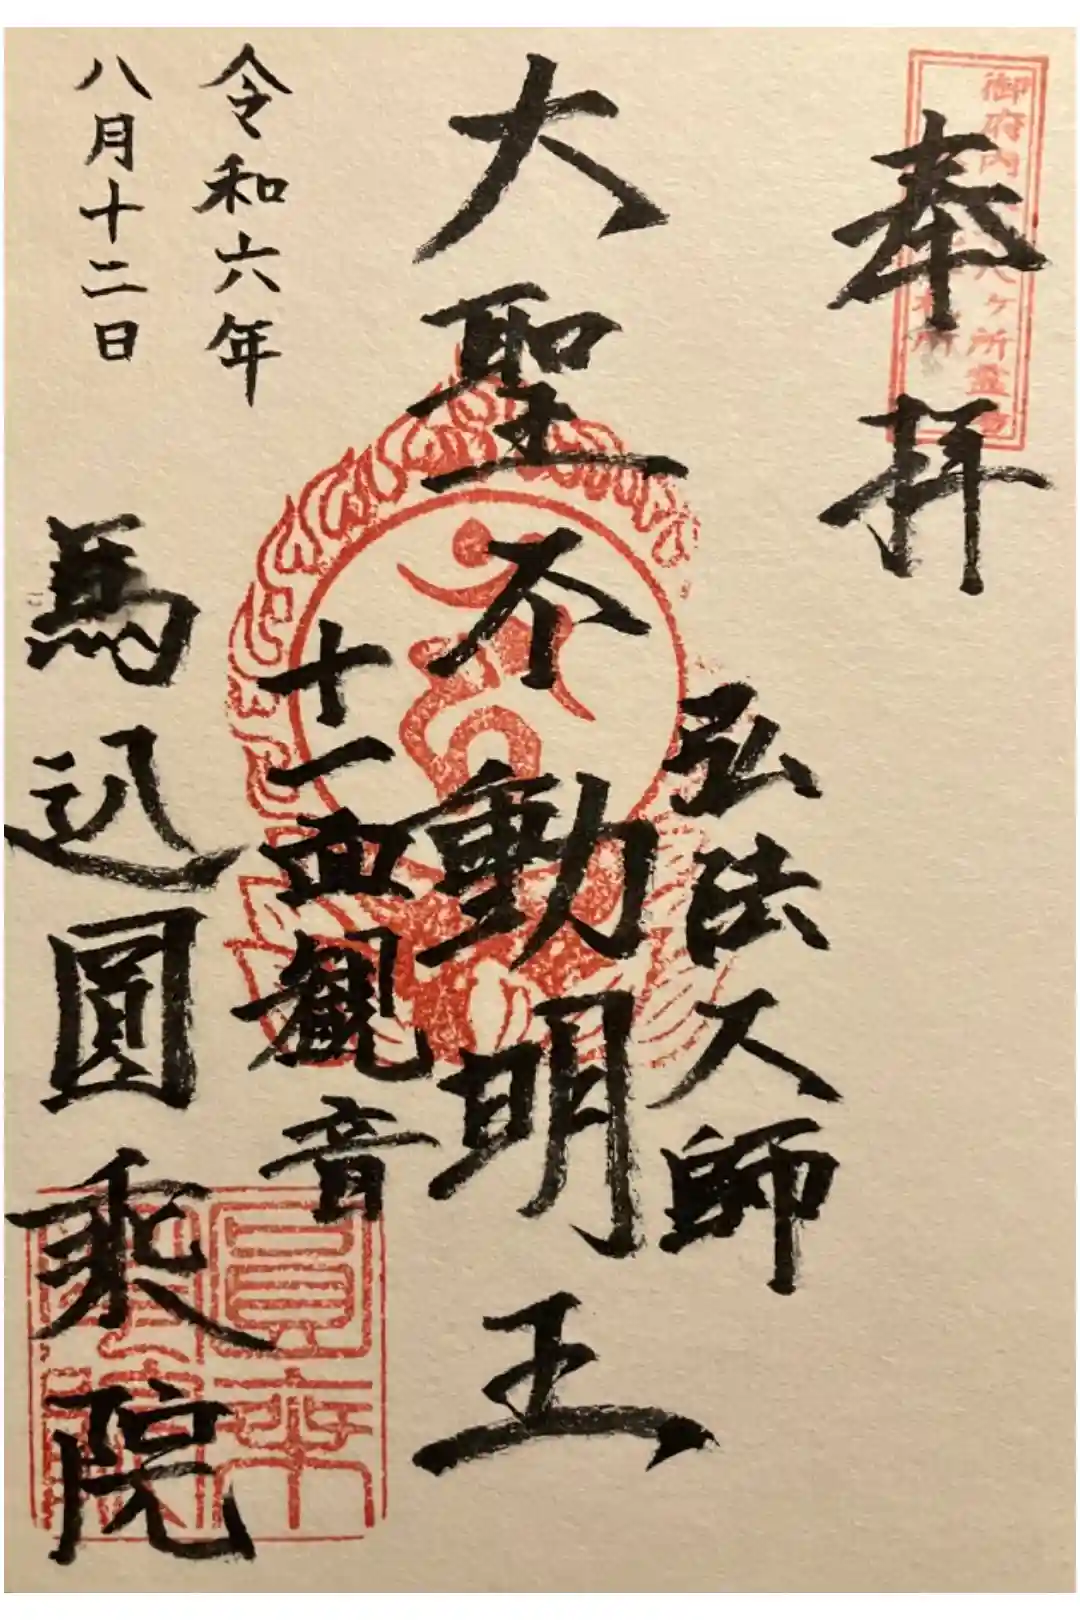 奉拝
弘法大師
大聖不動明王
十一面観音
令和六年
八月十二日
馬込圓乗院
御府内
八ヶ所霊